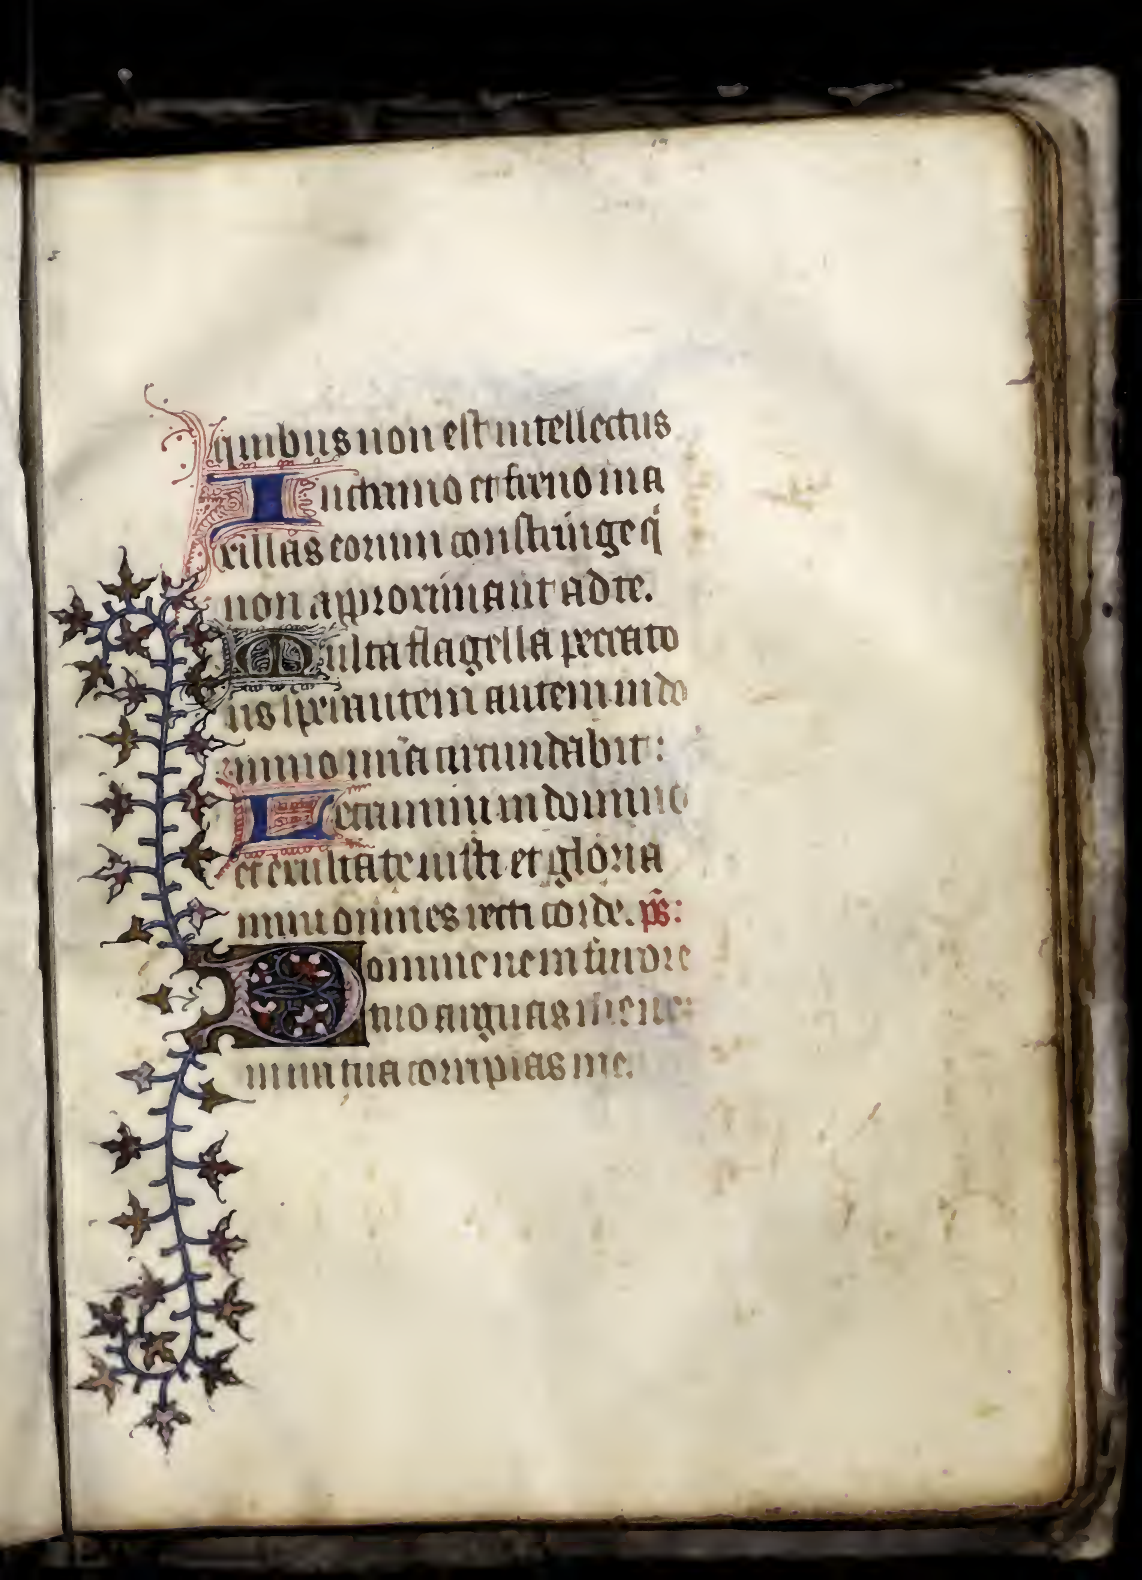 quibus non est intellectus
In chamo et freno ma
xillas eorum constringe q̄
non approximant ad te.
Multa flagella peccato
ris sperantem autem in do
mino mīa circundabit:
Letamini in domino
et exultate iusti et gloria
mini omnes recti corde. ps̄:
Domine ne in furore
tuo arguas me ne:
in ira tua corripias me.